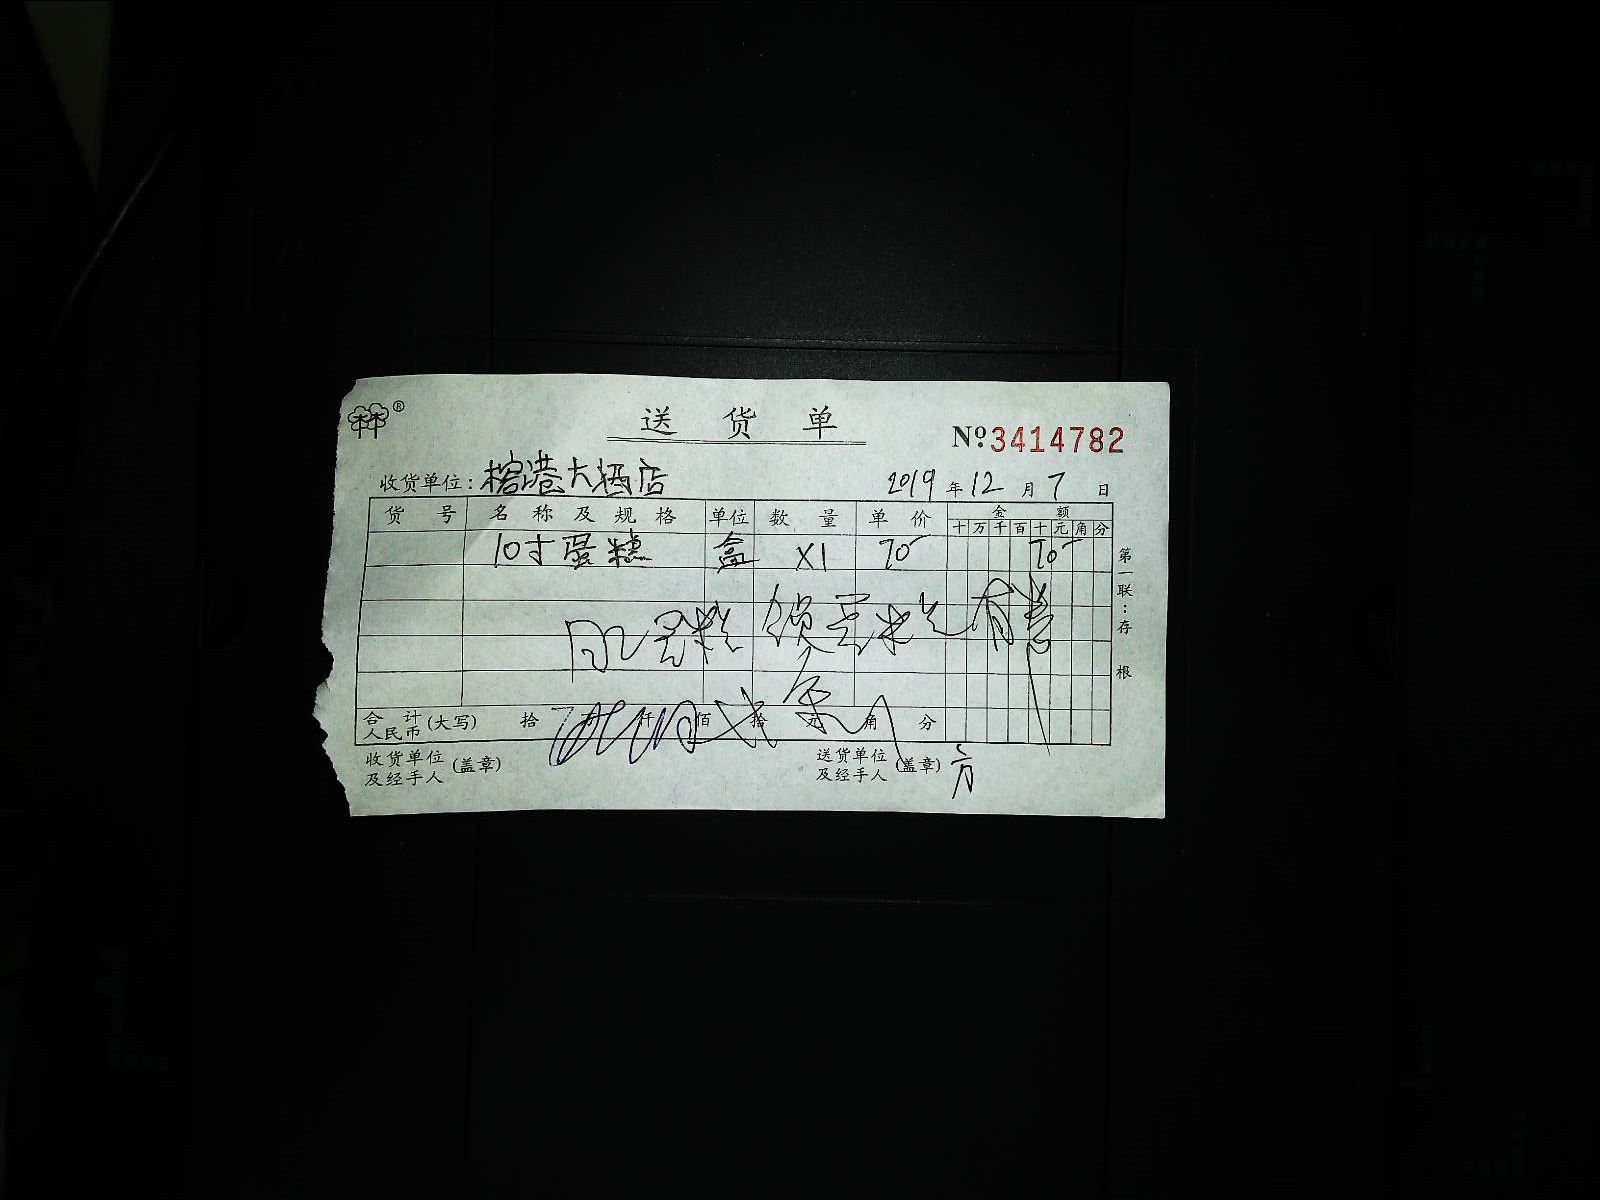 ®
送 货 单
Nº3414782
收货单位：榕港大酒店 2019 年 12 月 7 日
货 号 名 称 及 规 格 单位 数 量 单 价 金 额
十 万 千 百 十 元 角 分
10寸蛋糕 盒 X1 70 70
第一联：存根
合 计 人民币 (大写) 拾 仟 佰 拾 元 角 分
收货单位及经手人 (盖章) 送货单位及经手人 (盖章) 方